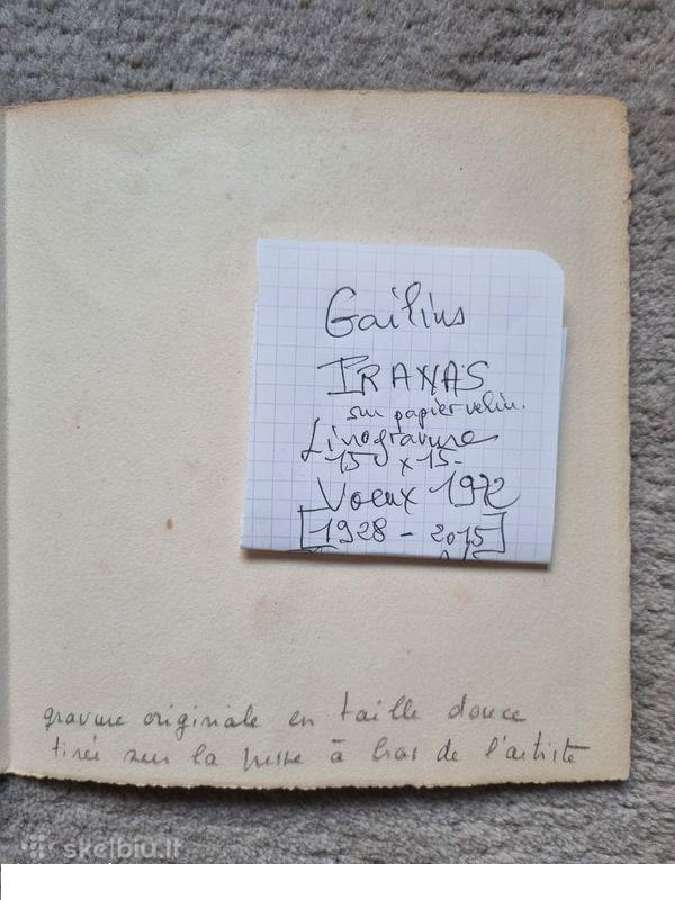 Gailius
IRANAS
sur papier velin.
Linogravure
15 x 15-
Voeux 1972
1928 - 2015
gravure originale en taille douce
tirée sur la presse à bras de l'artiste
skelbiu.lt